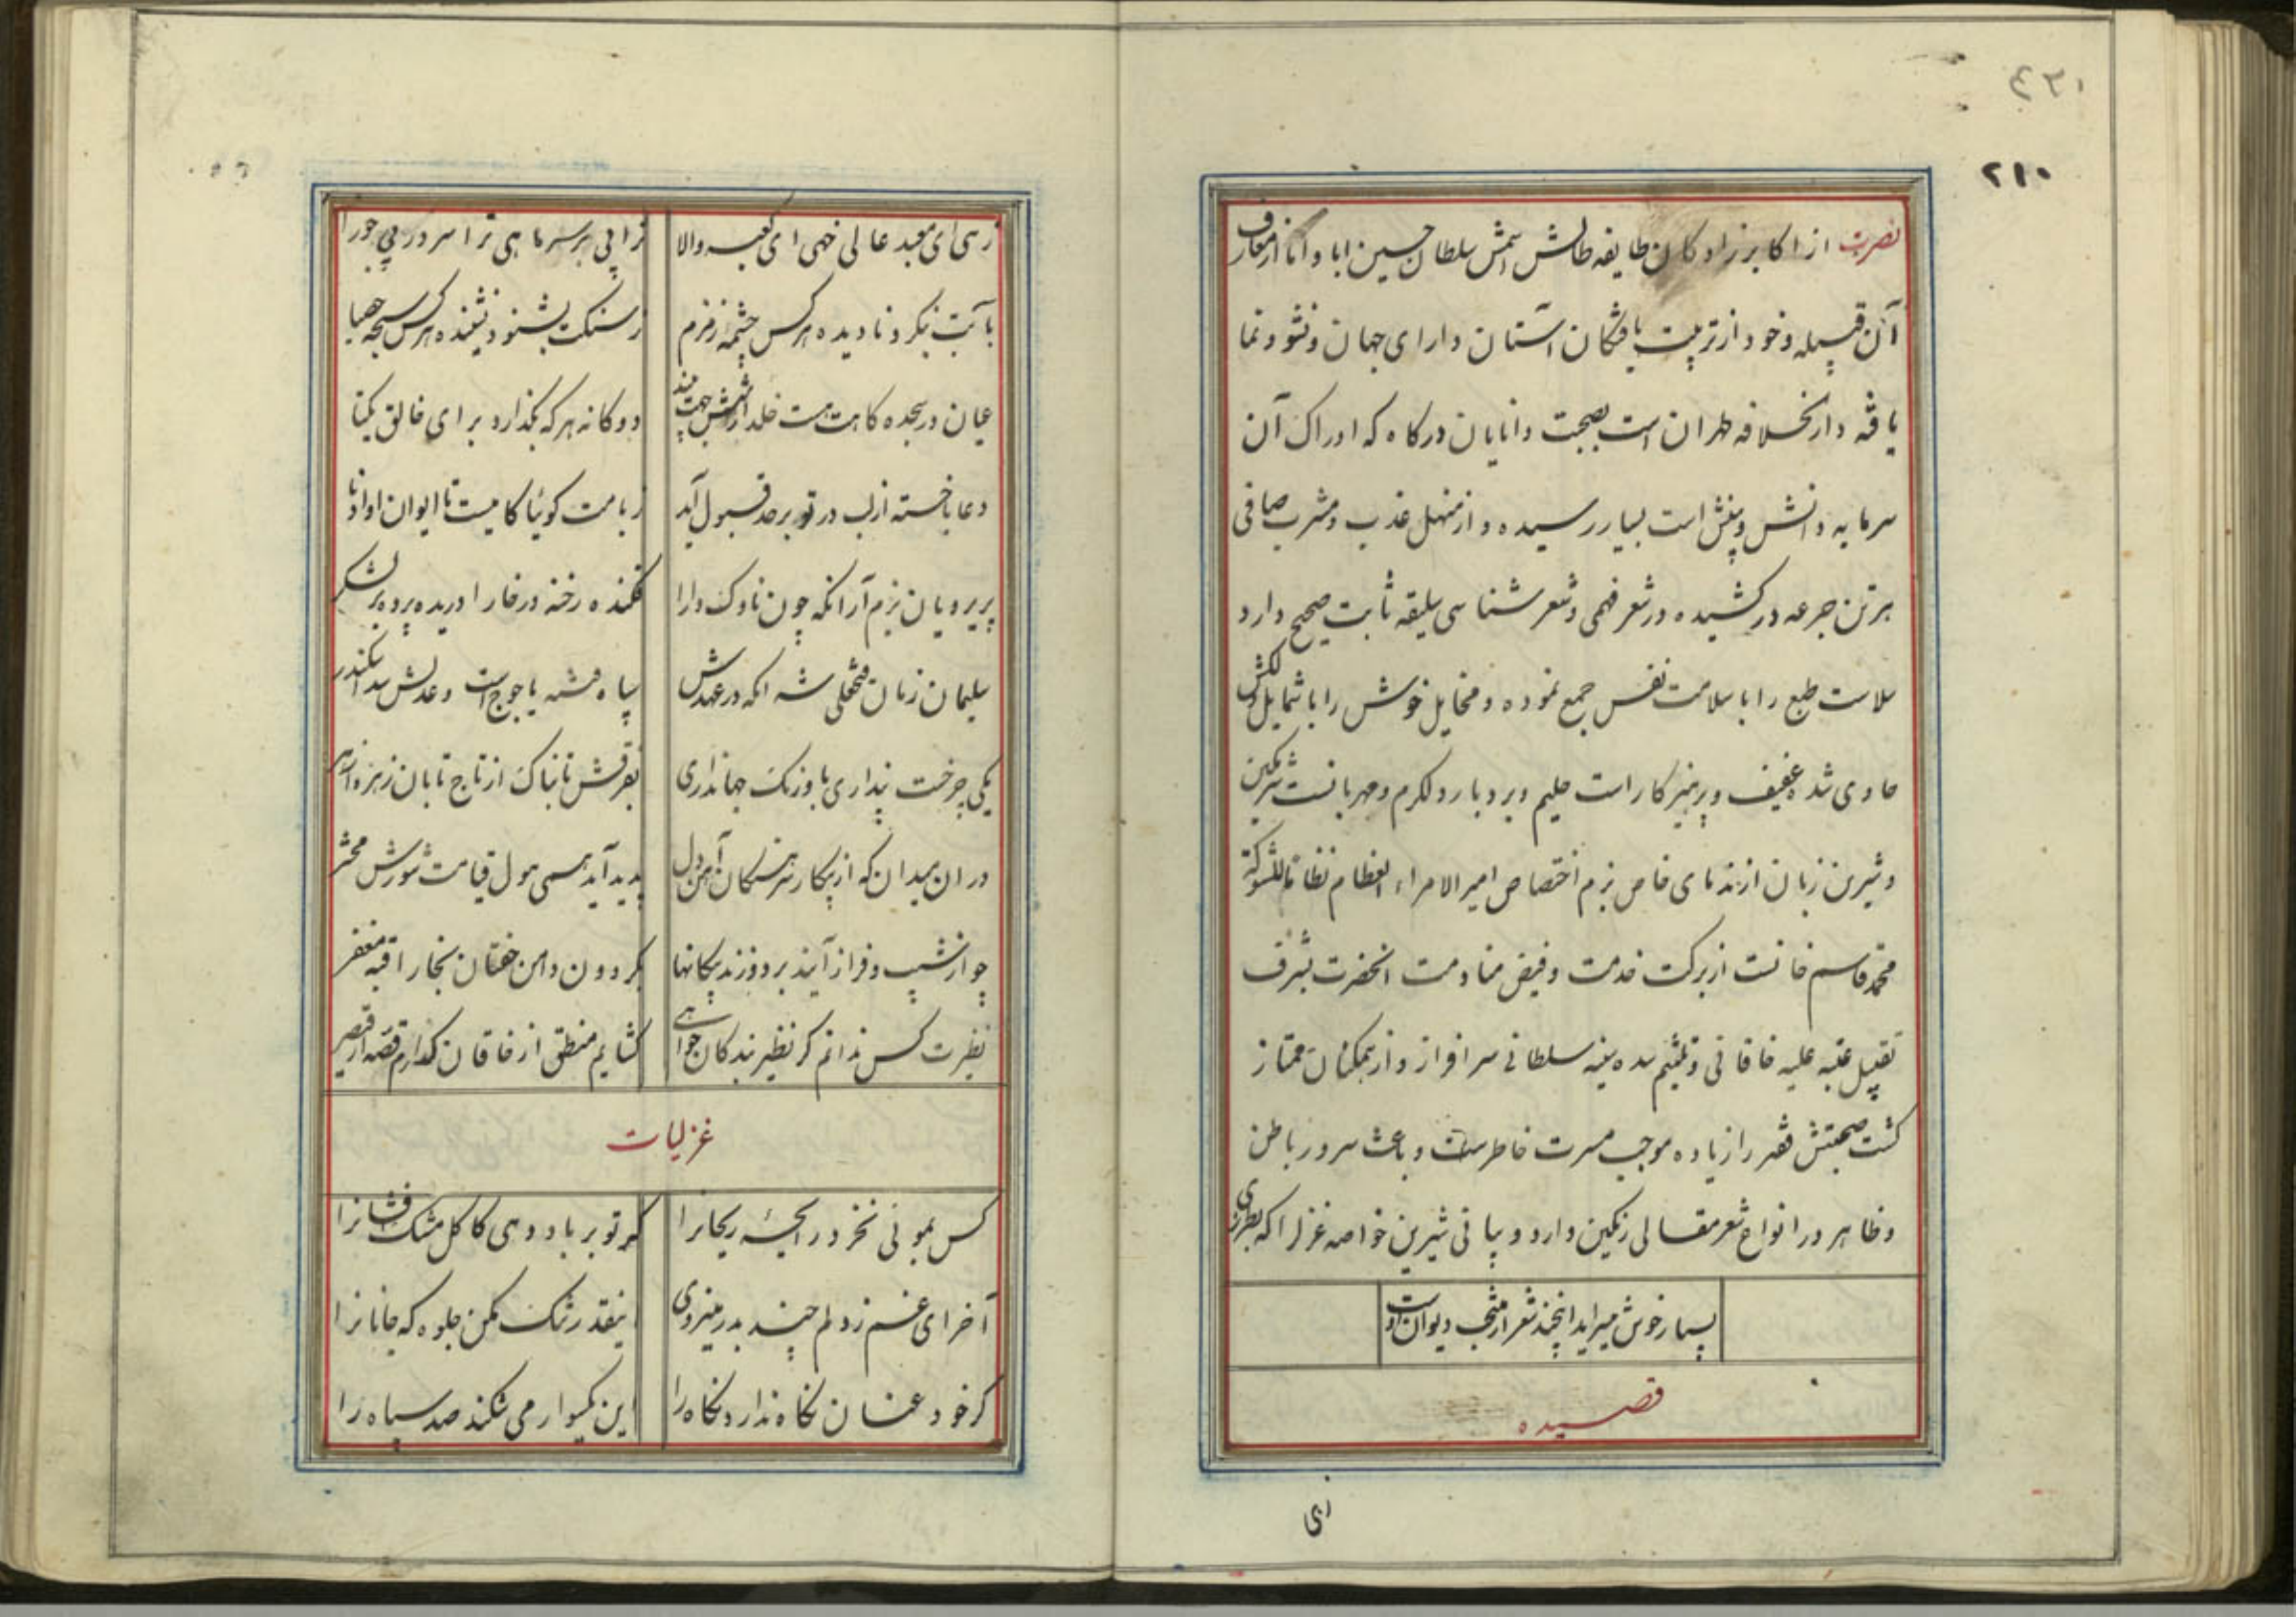 ۴۳۱
۲۱۰
نصرت از اکابر زادکان طایفه طالش اسمش سلطان حسین ابا و اما از معارف
آن قبیله و خود از تربیت یافتکان آستان دارای جهان و نشو و نما
یافته دارالخلافه طهران است بصحبت دانایان درکاه که ادراک آن
سرمایه دانش و بینش است بسیار رسیده و از منهل عذب و مشرب صافی
برترین جرعه درکشیده در شعر فهمی و شعر شناسی سلیقه ثابت صحیح دارد
سلاست طبع را با سلامت نفس جمع نموده و مخایل خوش را با شمایل دلکش
حاوی شد عفیف و پرهیز کار است حلیم و بردبار و لکرم و مهربانست شرمکین
و شیرین زبان از ندمای خاص بزم اختصاص امیر الامراء العظام نظاما للشوکة
محمد قاسم خانست از برکت خدمت و فیض منادمت انحضرت بشرف
تقبیل عتبه علیه خاقانی و تلثیم سده سنیه سلطانی سرافراز و از همکنان ممتاز
کشت صحبتش فقیر را زیاده موجب مسرت خاطرست و باعث سرور باطن
و ظاهر در انواع شعر مقالی رنکین دارد و بیانی شیرین خواصه غزل را که بطرزی
بسیار خوش میسراید اینچند شعر از منتخب دیوان اوست
قصیده
زهی
زهی ای معبد عالی خهی ای کعبه والا
ترا پی بر سر ماهی ترا سر در پی جورا
بآبت ننکرد نادیده هر کس چشمه زمزم
زسنکت بشنود نشنیده هر کس سبحه حصبا
عیان در سجده کاهت هست خلد از شش جهت بیند
دوکانه هر که بکذارد برای خالق یکتا
دعا ناخسته از لب در تو بر حد قبول آید
زبامت کوئیا کامیست تا ایوان او ادنا
پریرویان بزم آرا نکه چون ناوک دارا
فکنده رخنه در خارا دریده پرده بر لشکر
سلیمان زمان فتحعلی شه انکه در عهدش
سپاه فتنه یاجوج است و عدلش سد اسکندر
یکی چرخست پنداری باورنک جهانداری
بفرقش تابناک از تاج تابان زهره ازهر
در ان میدان که از پیکار سرهنکان آهن دل
پدید آید همی هول قیامت شورش محشر
چو از شیب و فراز آیند بردوزند پیکانها
بکردون دامن خفتان بخارا قبه مغفر
نظیرت کس ندانم کر نظیر بندکان جواهی
کشایم منطق از خاقان کدارم قصه از قیصر
غزلیات
کس بموئی نخرد رایحه ریحانرا
کر تو بر باد دهی کاکل مشک فشانرا
آخر ای غم زدلم چند بدر میزوی
اینقدر تنک مکن جلوه که جانانرا
کر خود عنان نکاه ندارد نکاه را
این یکسوار می شکند صد سپاه را